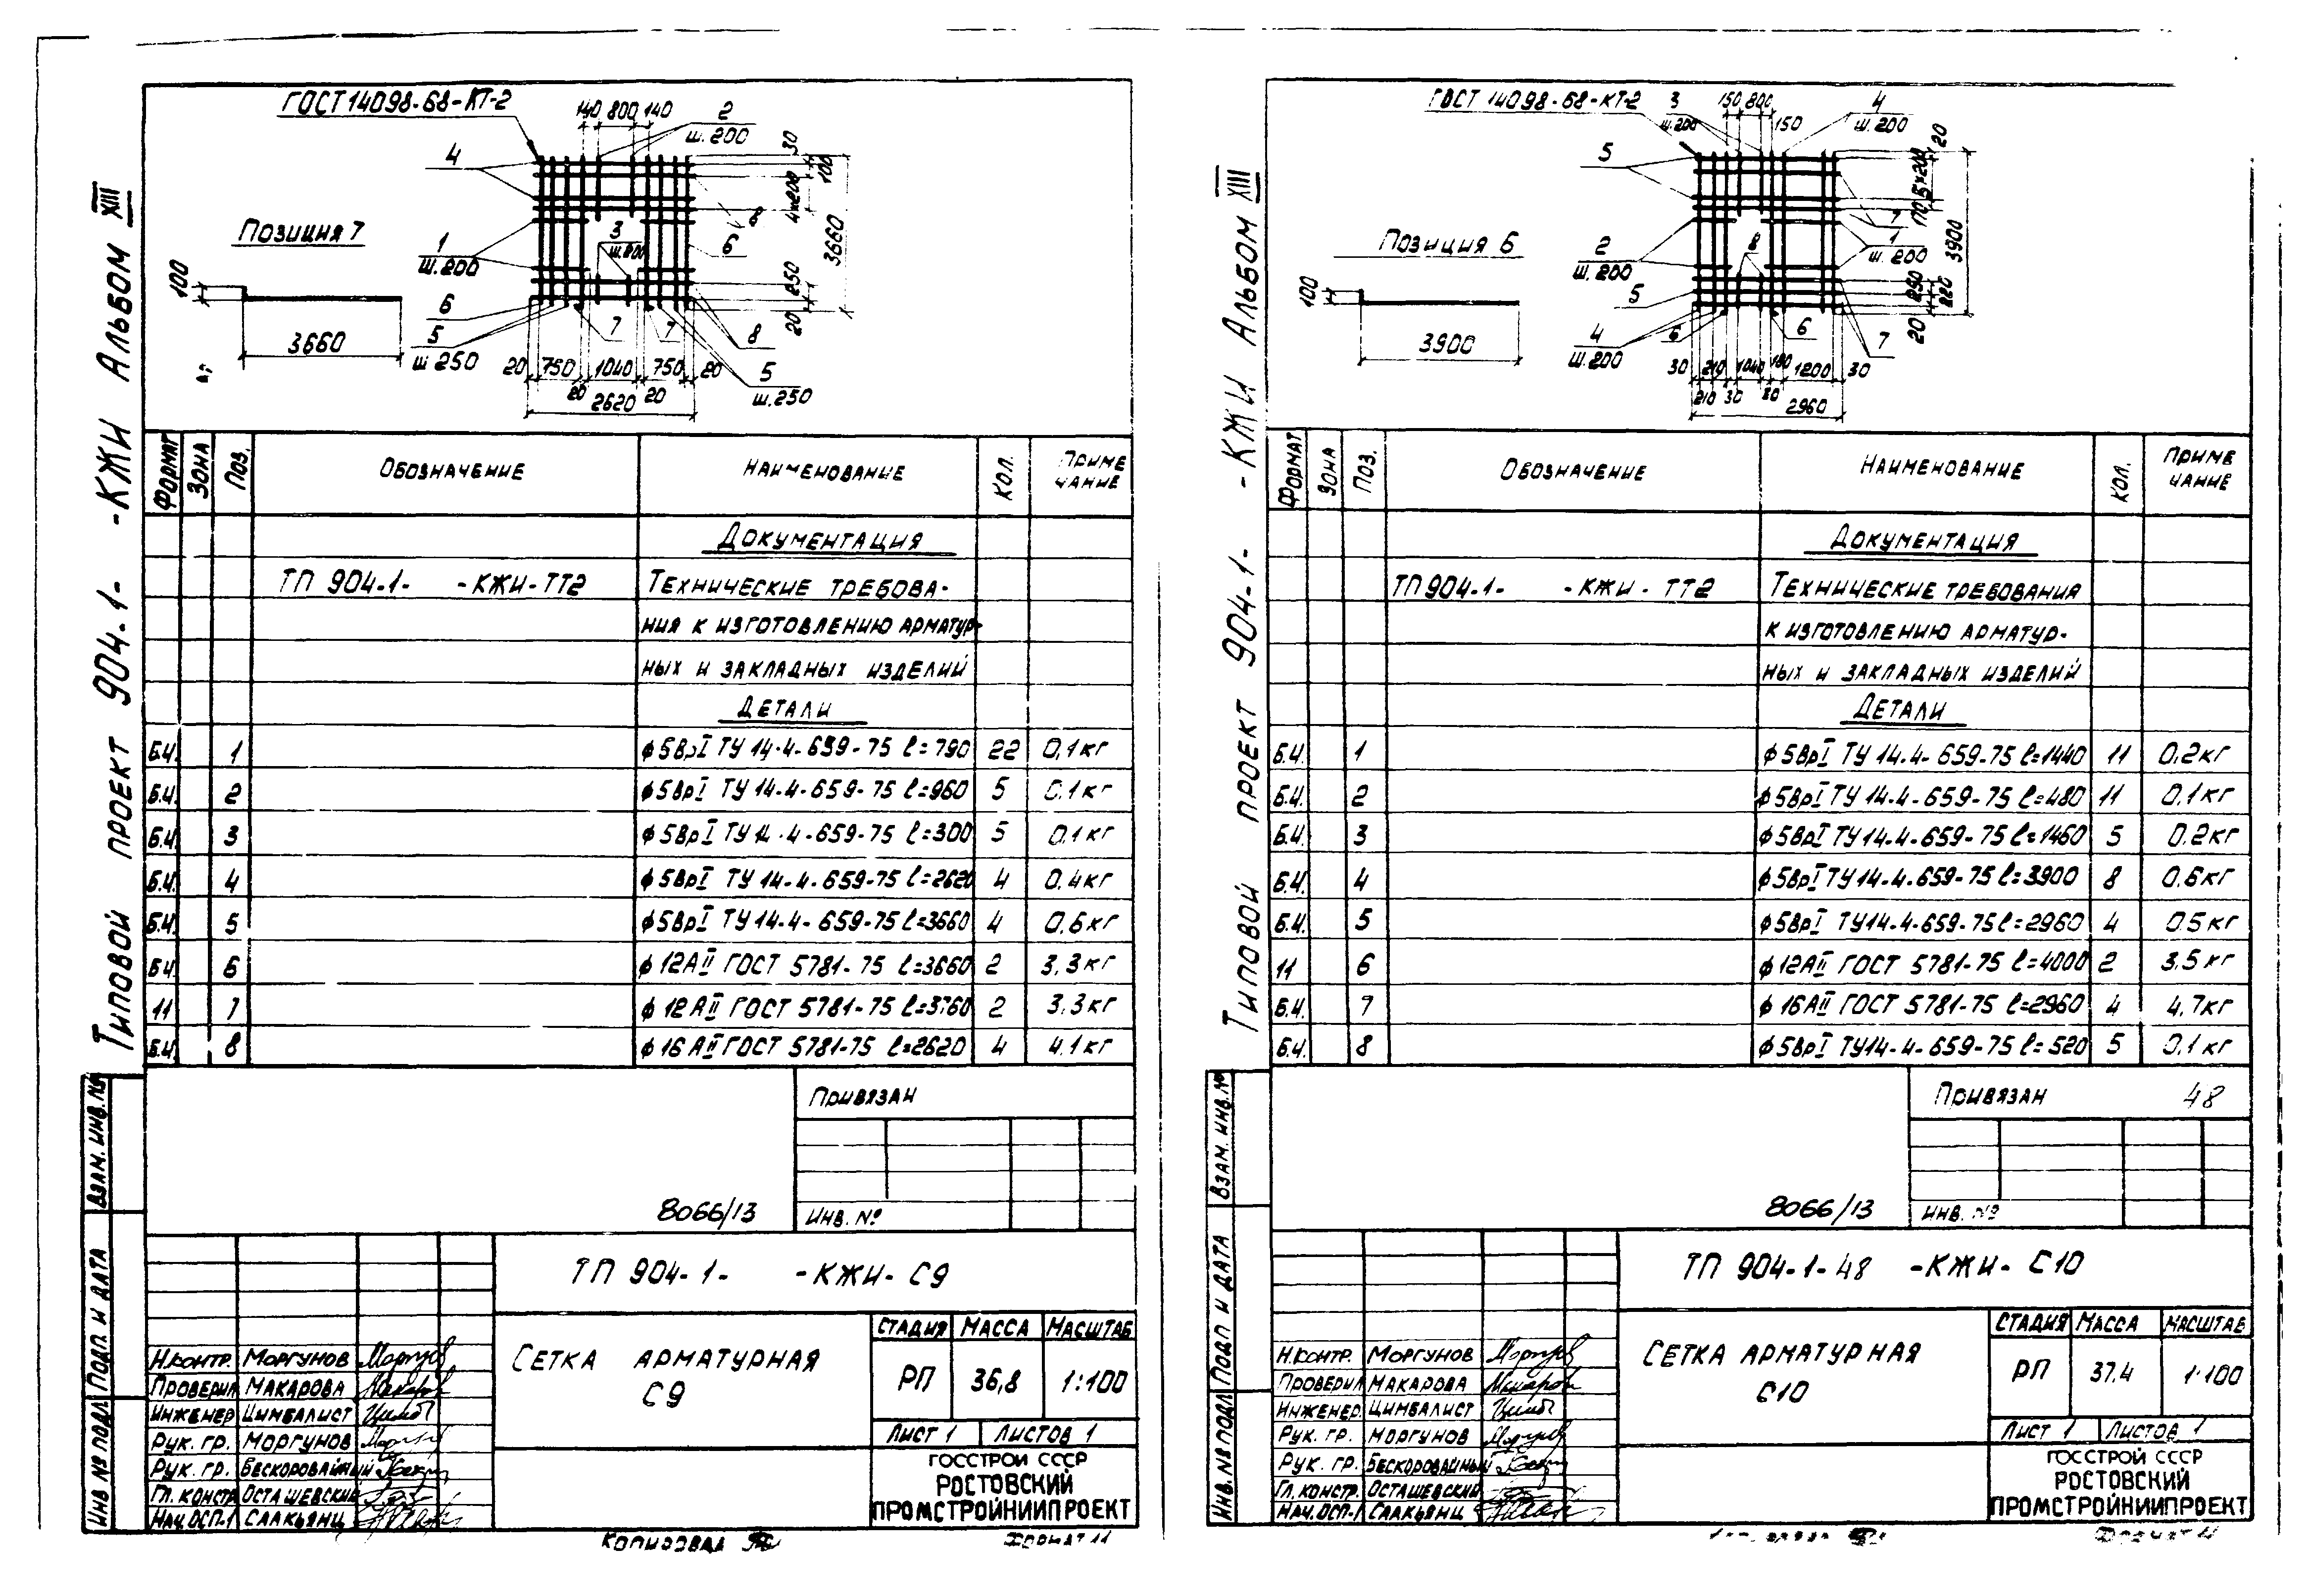 Типовой проект 904-1- -КЖИ Альбом XIII
ГОСТ 14098-68-КТ-2
140 800 140
2
ш.200
30
100
4×200
3660
250
20
4
8
3
ш.200
6
1
ш.200
6
5
ш 250
7
7
8
5
ш.250
20 750 1040 750 20
20 20
2620
Позиция 7
100
3660
Формат Зона Поз. Обозначение Наименование Кол. Приме
чание
Документация
ТП 904-1- -КЖИ-ТТ2 Технические требова-
ния к изготовлению арматур-
ных и закладных изделий
Детали
Б.Ч. 1 ф5ВрI ТУ 14-4-659-75 ℓ=790 22 0,1кг
Б.Ч. 2 ф5ВрI ТУ 14-4-659-75 ℓ=960 5 0,1кг
Б.Ч. 3 ф5ВрI ТУ 14-4-659-75 ℓ=300 5 0,1кг
Б.Ч. 4 ф5ВрI ТУ 14-4-659-75 ℓ=2620 4 0,4кг
Б.Ч. 5 ф5ВрI ТУ 14-4-659-75 ℓ=3660 4 0,6кг
Б.Ч. 6 ф12АII ГОСТ 5781-75 ℓ=3660 2 3,3кг
11 7 ф12АII ГОСТ 5781-75 ℓ=3760 2 3,3кг
Б.Ч. 8 ф16АII ГОСТ 5781-75 ℓ=2620 4 4,1кг
Привязан
8066/13
Инв. №
ТП 904-1- -КЖИ-С9
Сетка арматурная
С9
Стадия Масса Масштаб
РП 36,8 1:100
Лист 1 Листов 1
Госстрой СССР
Ростовский
Промстройниипроект
Н.контр. Моргунов
Проверил Макарова
Инженер Цимбалист
Рук. гр. Моргунов
Рук. гр. Бескоровайный
Гл. констр. Осташевский
Нач.ОСП-1 Саакьянц
Взам. инв.№
Подп. и дата
Инв № подл
Копировал
Формат 11
Типовой проект 904-1- -КЖИ Альбом XIII
ГОСТ 14098-68-КТ-2
3
ш.200
150 800
150
4
ш.200
20
5×200
170
3900
250
220
20
5
7
2
ш.200
8
1
ш.200
5
4
ш.200
6
6
7
30 210 1040 180 1200 30
210 30 80
2960
Позиция 6
100
3900
Формат Зона Поз. Обозначение Наименование Кол. Приме
чание
Документация
ТП 904-1- -КЖИ-ТТ2 Технические требования
к изготовлению арматур-
ных и закладных изделий
Детали
Б.Ч. 1 ф5ВрI ТУ 14-4-659-75 ℓ=1440 11 0,2кг
Б.Ч. 2 ф5ВрI ТУ 14-4-659-75 ℓ=480 11 0,1кг
Б.Ч. 3 ф5ВрI ТУ 14-4-659-75 ℓ=1460 5 0,2кг
Б.Ч. 4 ф5ВрI ТУ 14-4-659-75 ℓ=3900 8 0,6кг
Б.Ч. 5 ф5ВрI ТУ 14-4-659-75 ℓ=2960 4 0,5кг
11 6 ф12АII ГОСТ 5781-75 ℓ=4000 2 3,5кг
Б.Ч. 7 ф16АII ГОСТ 5781-75 ℓ=2960 4 4,7кг
Б.Ч. 8 ф5ВрI ТУ 14-4-659-75 ℓ=520 5 0,1кг
Привязан 48
8066/13
Инв. №
ТП 904-1-48 -КЖИ-С10
Сетка арматурная
С10
Стадия Масса Масштаб
РП 37,4 1:100
Лист 1 Листов 1
Госстрой СССР
Ростовский
Промстройниипроект
Н.контр. Моргунов
Проверил Макарова
Инженер. Цимбалист
Рук. гр. Моргунов
Рук. гр. Бескоровайный
Гл. констр. Осташевский
Нач.ОСП-1 Саакьянц
Взам. инв.№
Подп и дата
Инв. № подл
Формат 11